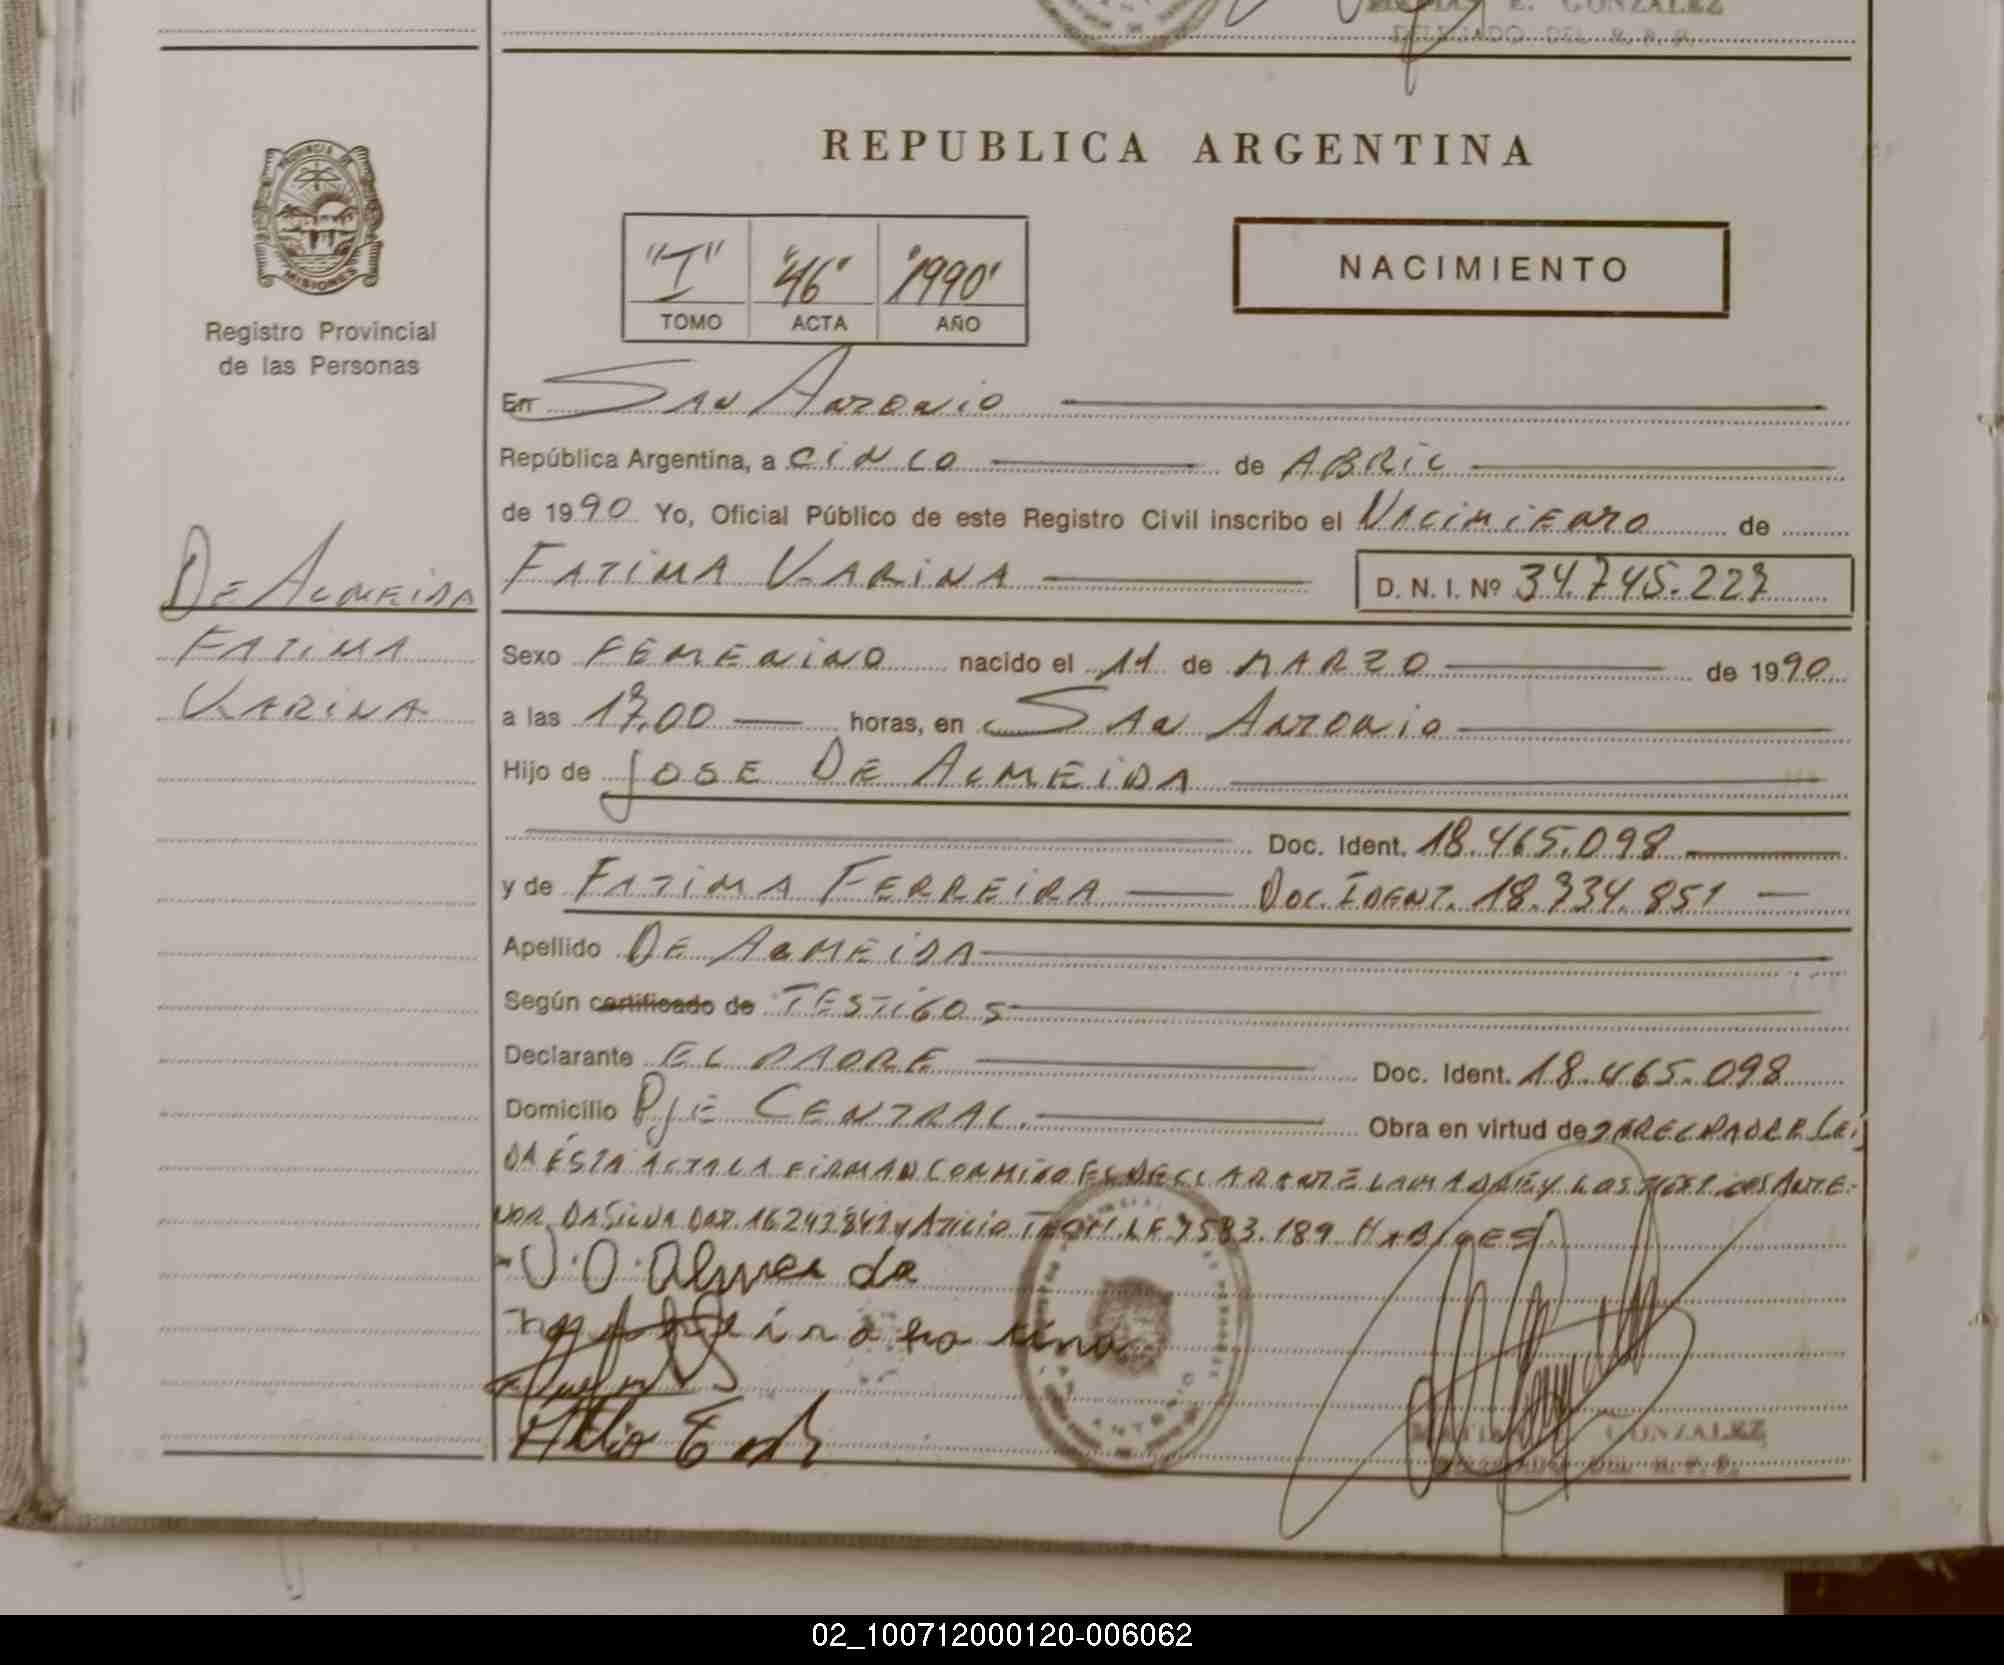 E. GONZALEZ
DELEGADO DEL R. P. P.
PROVINCIA DE
MISIONES
Registro Provincial
de las Personas
REPUBLICA ARGENTINA
"I" "46" "1990"
TOMO ACTA AÑO
NACIMIENTO
En San Antonio
República Argentina, a CINCO de ABRIL
de 1990 Yo, Oficial Público de este Registro Civil inscribo el Nacimiento de
De Almeida
Fatima
Karina
FATIMA KARINA D. N. I. Nº 34.745.227
Sexo FEMENINO nacido el 11 de MARZO de 1990
a las 17,00 horas, en San Antonio
Hijo de JOSE DE ALMEIDA
Doc. Ident. 18.465.098
y de FATIMA FERREIRA Doc. Ident. 18.734.851
Apellido DE ALMEIDA
Según certificado de TESTIGOS
Declarante EL PADRE Doc. Ident. 18.465.098
Domicilio Pje CENTRAL Obra en virtud de SER EL PADRE LEI
DA ÉSTA ACTA LA FIRMAN CONMIGO EL DECLARANTE LA MADRE Y LOS TESTIGOS ANTE-
NOR DA SILVA 16242842 y 7583.189 HABILES
J. D. Almeida
MATIAS E. GONZALEZ
DELEGADO DEL R. P. P.
02_100712000120-006062